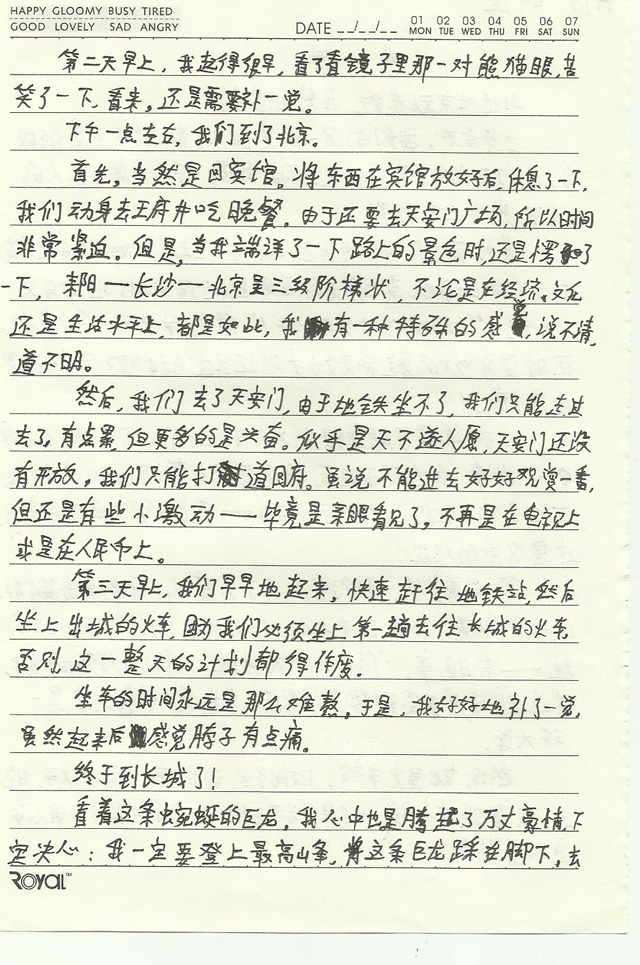 HAPPY GLOOMY BUSY TIRED
GOOD LOVELY SAD ANGRY
DATE __/__/__
01 02 03 04 05 06 07
MON TUE WED THU FRI SAT SUN
第二天早上，我起得很早，看了看镜子里那一对熊猫眼，苦
笑了一下，看来，还是需要补一觉。
下午一点左右，我们到了北京。
首先，当然是回宾馆。将东西在宾馆放好后，休息了一下，
我们动身去王府井吃晚餐。由于还要去天安门广场，所以时间
非常紧迫。但是，当我端详了一下路上的景色时，还是愣了
一下，耒阳——长沙——北京呈三级阶梯状，不论是在经济、文化
还是生活水平上，都是如此，我有一种特殊的感觉，说不清，
道不明。
然后，我们去了天安门，由于地铁坐不了，我们只能走过
去了，有点累，但更多的是兴奋。似乎是天不遂人愿，天安门还没
有开放，我们只能打道回府。虽说不能进去好好观赏一番，
但还是有些小激动——毕竟是亲眼看见了，不再是在电视上
或是在人民币上。
第三天早上，我们早早地起来，快速赶往地铁站，然后
坐上出城的火车，因为我们必须坐上第一趟去往长城的火车，
否则，这一整天的计划都得作废。
坐车的时间永远是那么难熬，于是，我好好地补了一觉，
虽然起来后感觉脖子有点痛。
终于到长城了！
看着这条蜿蜒的巨龙，我心中也是腾起了万丈豪情，下
定决心：我一定要登上最高峰，将这条巨龙踩在脚下，去
ROYAL™